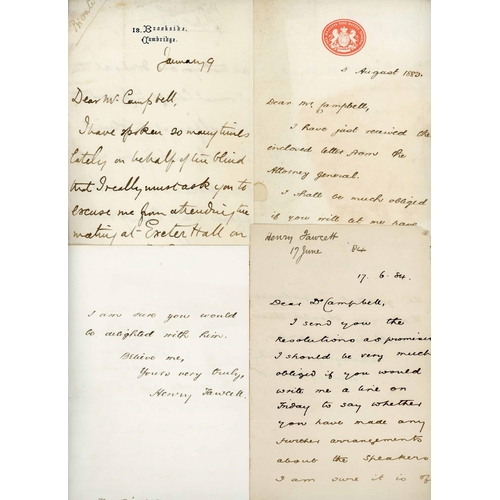 Private
18. Brookside,
Cambridge.
January 9
Dear Mr Campbell,
I have spoken so many times
lately on behalf of the blind
that I really must ask you to
excuse me from attending the
meeting at Exeter Hall on
3 August 1883.
Dear Mr Campbell,
I have just received the
enclosed letter from the
Attorney General.
I shall be much obliged
if you will let me have
I am sure you would
be delighted with him.
Believe me,
Yours very truly,
Henry Fawcett.
Henry Fawcett
17 June 84
17. 6. 84.
Dear Dr Campbell,
I send you the
Resolutions as promised
I should be very much
obliged if you would
write me a line on
Friday to say whether
you have made any
further arrangements
about the speakers
I am sure it is of